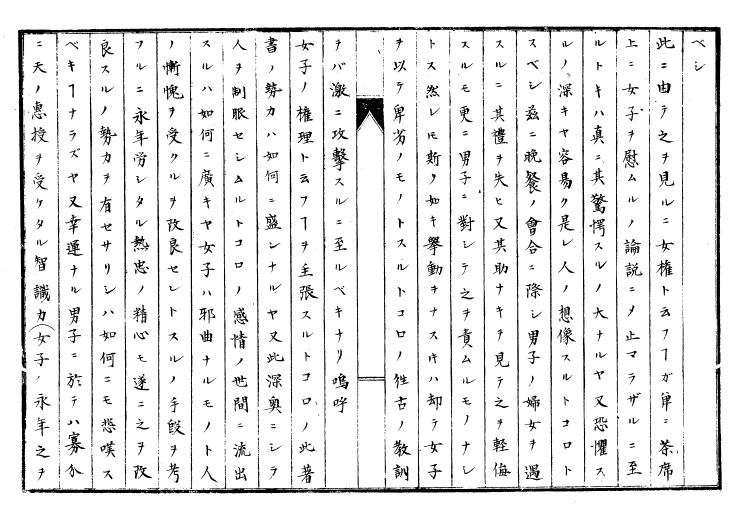 ベシ
此ニ由テ之ヲ見ルニ女権ト云フヿガ単ニ茶席
上ニ女子ヲ慰ムルノ論説ニノミ止マラザルニ至
ルトキハ真ニ其驚愕スルノ大ナルヤ又恐懼ス
ルノ深キヤ容易ク是レ人ノ想像スルトコロト
スベシ茲ニ晩餐ノ會合ニ際シ男子ノ婦女ヲ遇
スルニ其禮ヲ失ヒ又其助ナキヲ見テ之ヲ軽侮
スルモ更ニ男子ニ對シテ之ヲ責ムルモノナシ
トス然レモ斯ク如キ擧動ヲナスキハ却テ女子
ヲ以テ卑劣ノモノトスルトコロノ徃古ノ教訓
ヲバ激ニ攻擊スルニ至ルベキナリ嗚呼
女子ノ權理ト云フヿヲ主張スルトコロノ此著
書ノ勢力ハ如何ニ盛ンナルヤ又此深奥ニシテ
人ヲ制服セシムルトコロノ感情ノ世間ニ流出
スルハ如何ニ廣キヤ女子ハ邪曲ナルモノト人
ノ慚愧ヲ受クルヲ改良セントスルノ手段ヲ考
フルニ永年労シタル熱忠ノ精心モ遂ニ之ヲ改
良スルノ勢力ヲ有セサリシハ如何ニモ悲嘆ス
ベキヿナラズヤ又幸運ナル男子ニ於テハ寡カ
ニ天ノ惠授ヲ受ケタル智識力（女子ノ永年之ヲ